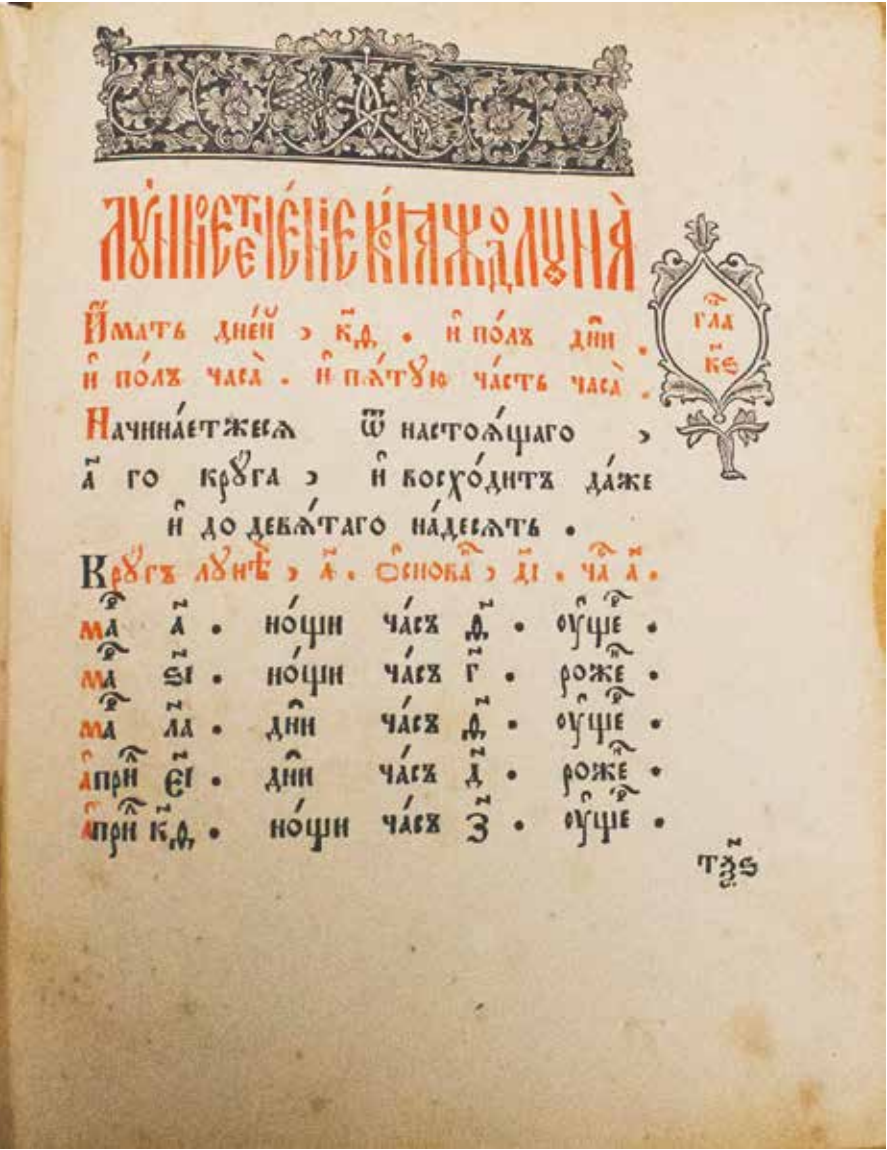 Лꙋ́нное тече́нїе коꙗ́ждо лꙋна̀
И҆́мать дне́й , к҃ѳ . и҆ по́лъ дни̑ .
и҆ по́лъ часа̀ . и҆ пѧ́тꙋю ча́сть часа̀ .
гла в҇
к҃ѕ
Начина́етжесѧ ѿ настоѧ́щаго ,
а҃ го крꙋ́га , и҆ восхо́дитъ да́же
и҆ до девѧ́таго на́десѧть .
Крꙋ́гъ лꙋнѣ̀ , а҃ . Ѻ҆снова̑ , д҃і . ча̑ а҃ .
маⷬ҇ а҃ . но́щи ча́съ ѳ҃ . ᲂу҆щеⷬ҇ .
маⷬ҇ ѕ҃і . но́щи ча́съ г҃ . рожеⷣ҇ .
маⷬ҇ л҃а . дни̑ ча́съ ѳ҃ . ᲂу҆щеⷬ҇ .
а҆приⷧ҇ є҃і . дни̑ ча́съ д҃ . рожеⷣ҇ .
а҆приⷧ҇ к҃ѳ . но́щи ча́съ з҃ . ᲂу҆щеⷬ҇ .
тѯ҃ѕ